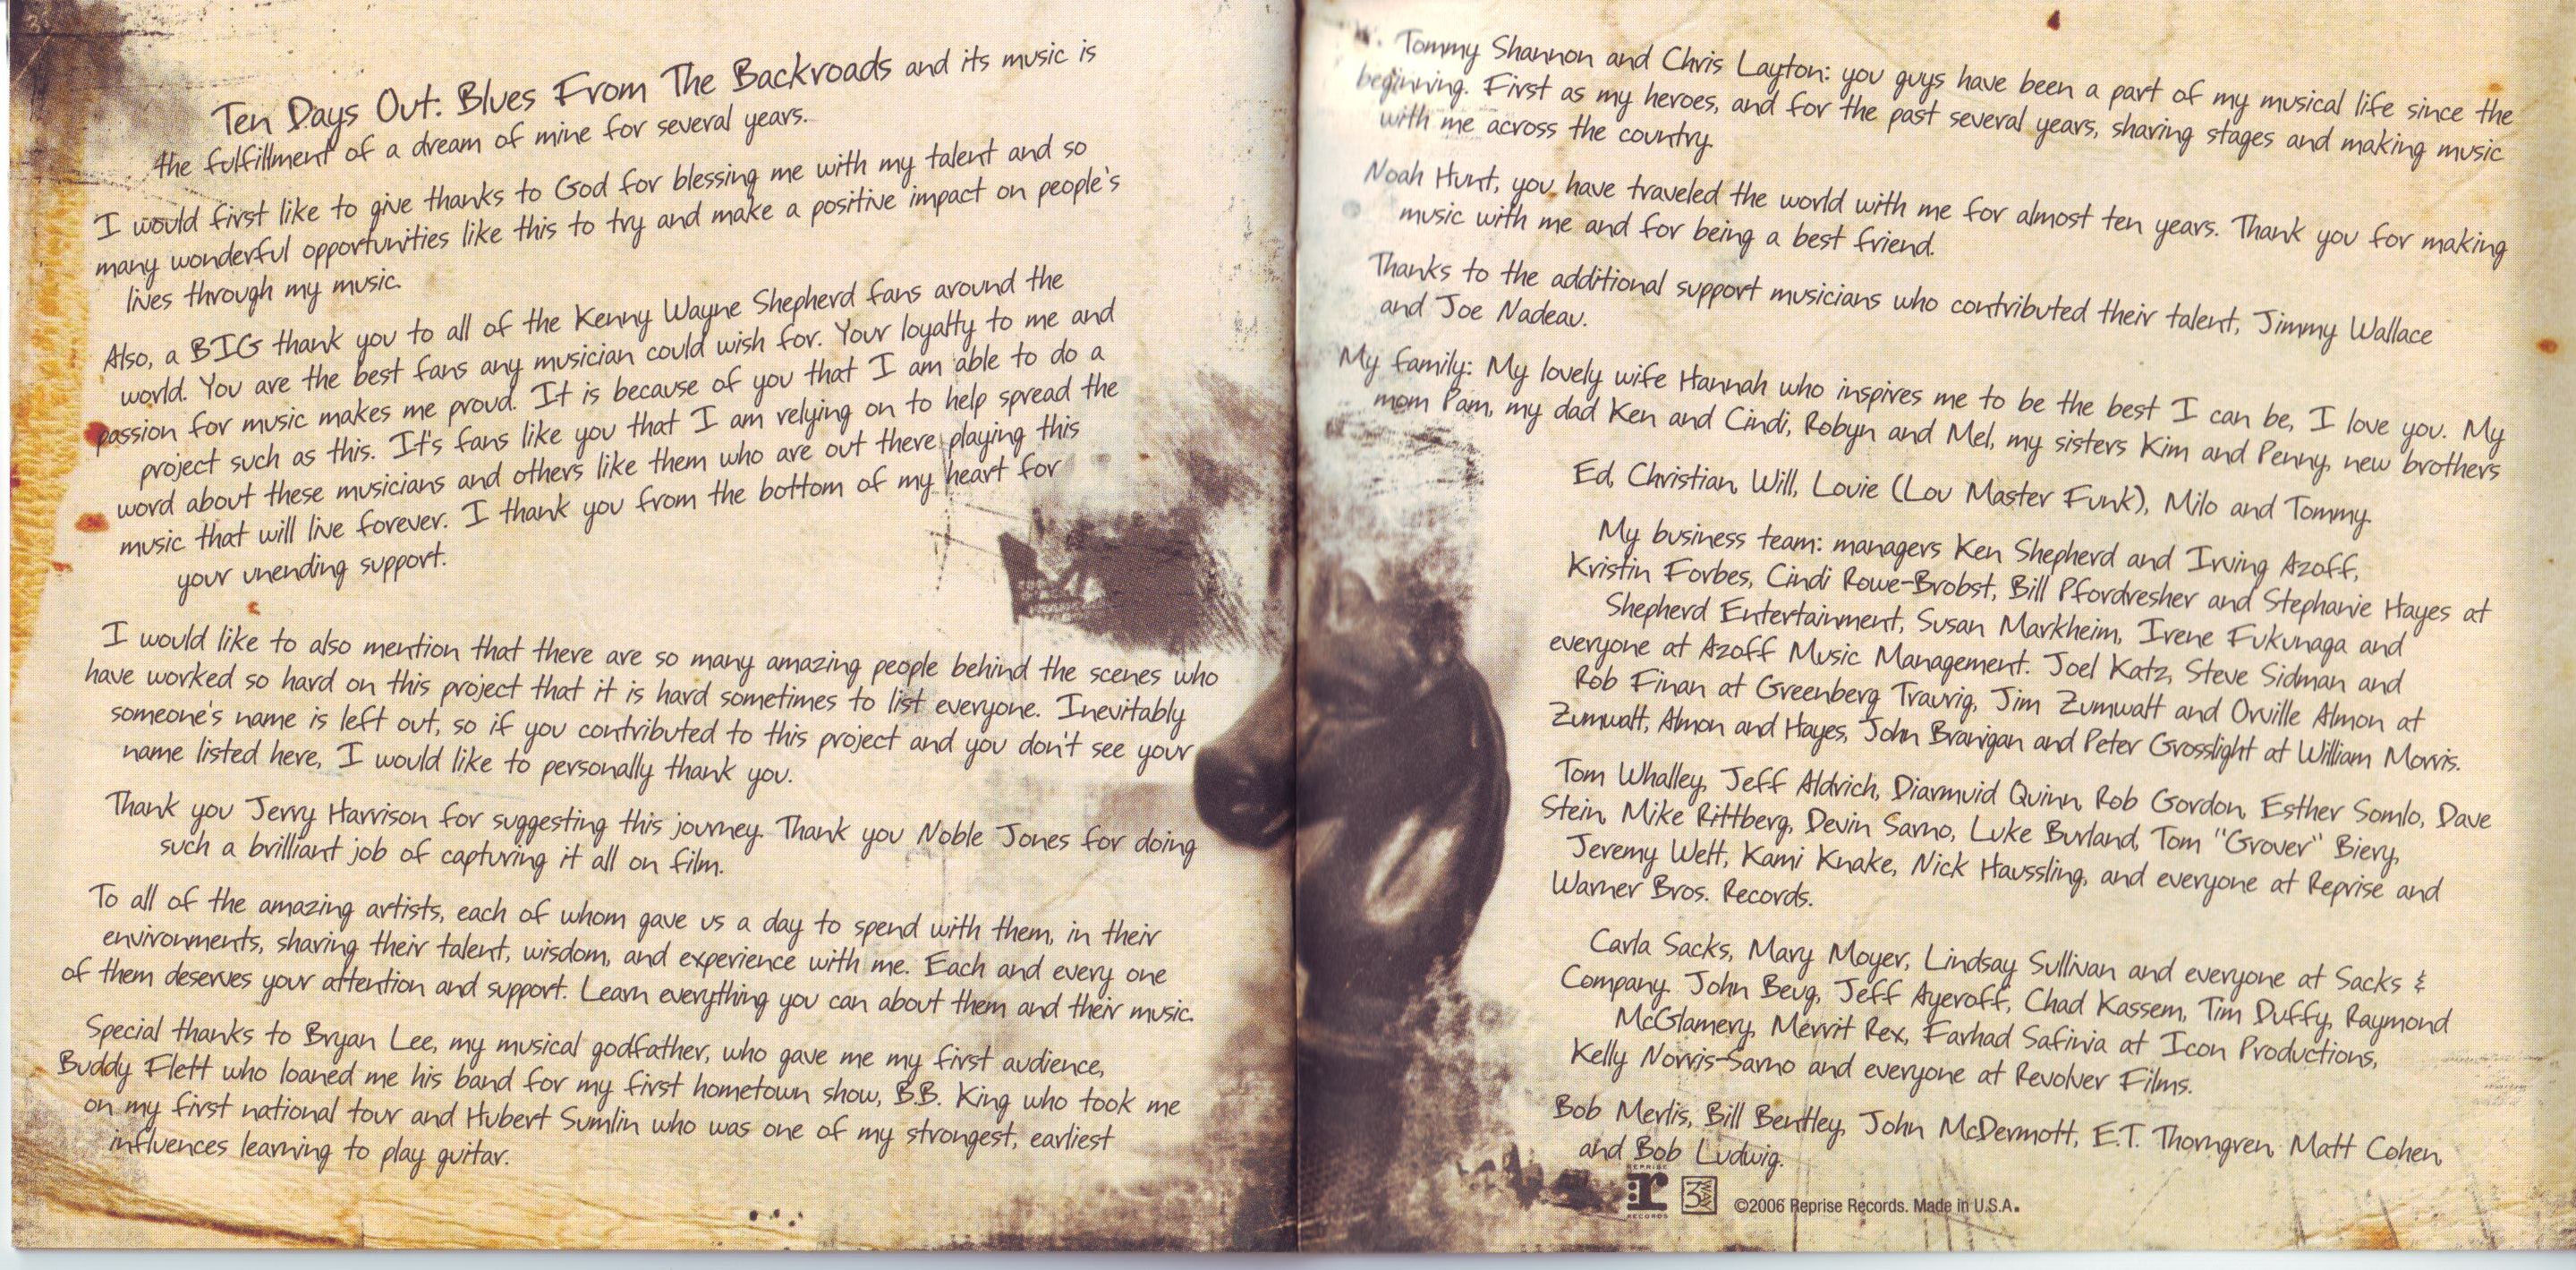 Ten Days Out: Blues From The Backroads and its music is
the fulfillment of a dream of mine for several years.
I would first like to give thanks to God for blessing me with my talent and so
many wonderful opportunities like this to try and make a positive impact on people's
lives through my music.
Also, a BIG thank you to all of the Kenny Wayne Shepherd fans around the
world. You are the best fans any musician could wish for. Your loyalty to me and
passion for music makes me proud. It is because of you that I am able to do a
project such as this. It's fans like you that I am relying on to help spread the
word about these musicians and others like them who are out there playing this
music that will live forever. I thank you from the bottom of my heart for
your unending support.
I would like to also mention that there are so many amazing people behind the scenes who
have worked so hard on this project that it is hard sometimes to list everyone. Inevitably
someone's name is left out, so if you contributed to this project and you don't see your
name listed here, I would like to personally thank you.
Thank you Jerry Harrison for suggesting this journey. Thank you Noble Jones for doing
such a brilliant job of capturing it all on film.
To all of the amazing artists, each of whom gave us a day to spend with them, in their
environments, sharing their talent, wisdom, and experience with me. Each and every one
of them deserves your attention and support. Learn everything you can about them and their music.
Special thanks to Bryan Lee, my musical godfather, who gave me my first audience,
Buddy Flett who loaned me his band for my first hometown show, B.B. King who took me
on my first national tour and Hubert Sumlin who was one of my strongest, earliest
influences learning to play guitar.
Tommy Shannon and Chris Layton: you guys have been a part of my musical life since the
beginning. First as my heroes, and for the past several years, sharing stages and making music
with me across the country.
Noah Hunt, you have traveled the world with me for almost ten years. Thank you for making
music with me and for being a best friend.
Thanks to the additional support musicians who contributed their talent, Jimmy Wallace
and Joe Nadeau.
My family: My lovely wife Hannah who inspires me to be the best I can be, I love you. My
mom Pam, my dad Ken and Cindi, Robyn and Mel, my sisters Kim and Penny, new brothers
Ed, Christian, Will, Louie (Lou Master Funk), Milo and Tommy.
My business team: managers Ken Shepherd and Irving Azoff,
Kristin Forbes, Cindi Rowe-Brobst, Bill Pfordresher and Stephanie Hayes at
Shepherd Entertainment, Susan Markheim, Irene Fukunaga and
everyone at Azoff Music Management. Joel Katz, Steve Sidman and
Rob Finan at Greenberg Traurig, Jim Zumwalt and Orville Almon at
Zumwalt, Almon and Hayes, John Branigan and Peter Grosslight at William Morris.
Tom Whalley, Jeff Aldrich, Diarmuid Quinn, Rob Gordon, Esther Somlo, Dave
Stein, Mike Rittberg, Devin Sarno, Luke Burland, Tom "Grover" Biery,
Jeremy Welt, Kami Knake, Nick Haussling, and everyone at Reprise and
Warner Bros. Records.
Carla Sacks, Mary Moyer, Lindsay Sullivan and everyone at Sacks &
Company. John Beug, Jeff Ayeroff, Chad Kassem, Tim Duffy, Raymond
McGlamery, Merrit Rex, Farhad Safinia at Icon Productions,
Kelly Norris-Sarno and everyone at Revolver Films.
Bob Merlis, Bill Bentley, John McDermott, E.T. Thorngren, Matt Cohen,
and Bob Ludwig.
REPRISE
r
RECORDS
3 WAY
©2006 Reprise Records. Made in U.S.A.